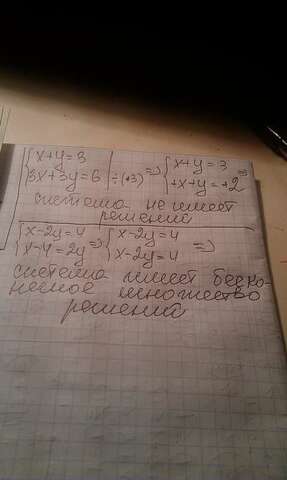 {x+y=3 | {x+y=3
{3x+3y=6 | ÷(+3) => {+x+y=+2 =>
система не имеет
решений
{x-2y=4 {x-2y=4
{x-4=2y => {x-2y=4 =>
система имеет беско-
нечное множество
решений